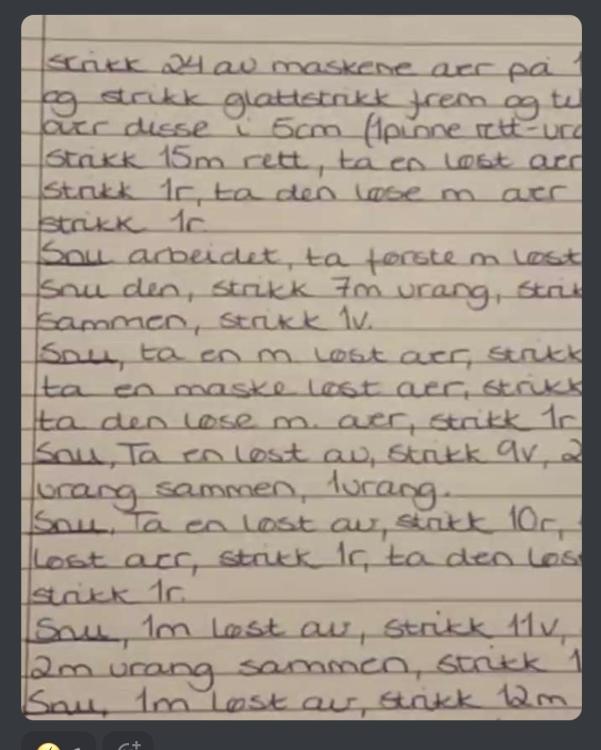 strikk 24 av maskene aer på 1
og strikk glattstrikk frem og
aer disse i 5cm (1pinne rett-vra
strikk 15m rett, ta en løst aer
strikk 1r, ta den løse m aer
strikk 1r.
Snu arbeidet, ta første m løst
Snu den, strikk 7m vrang, strik
sammen, strikk 1v.
Snu, ta en m løst aer, strikk
ta en maske løst aer, strikk
ta den løse m. aer, strikk 1r
Snu, Ta en løst av, strikk 9v, 2
vrang sammen, 1vrang.
Snu, Ta en løst av, strikk 10r,
løst aer, strikk 1r, ta den løs
strikk 1r.
Snu, 1m løst av, strikk 11v,
2m vrang sammen, strikk 1
Snu, 1m løst av, strikk 12m